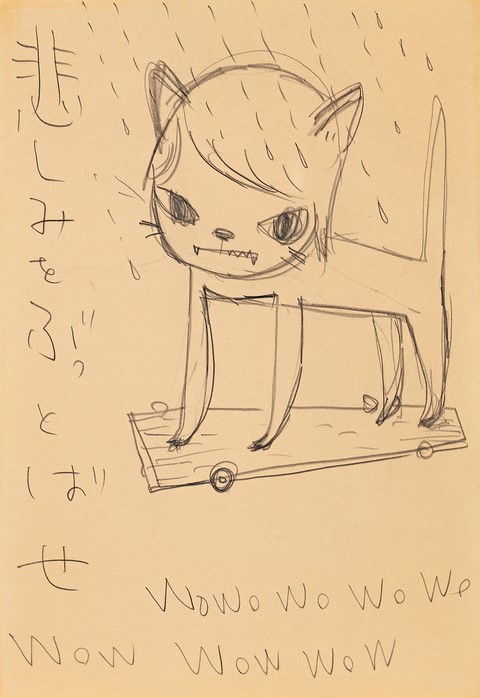 悲しみをぶっとばせ
WoWo Wo Wo We
WoW WoW WoW